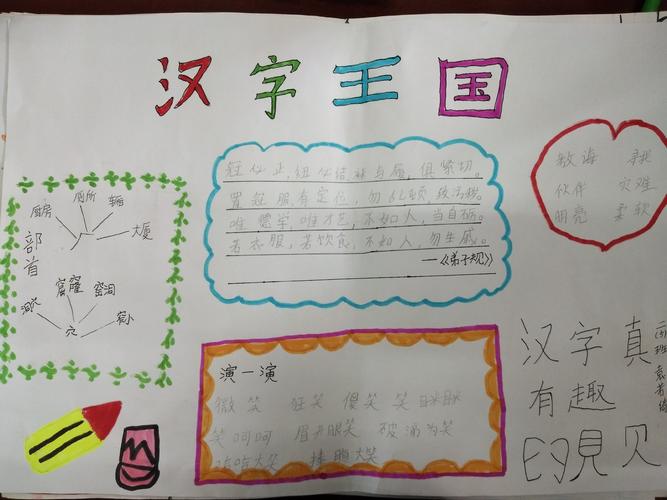 汉字王国
冠必正,纽必结袜与履,俱紧切。
置冠服有定位,勿乱顿,致污秽。
唯德学唯才艺,不如人,当自砺。
若衣服,若饮食,不如人,勿生戚。
——《弟子规》
寻找
伙伴 灾难
明亮 柔软
部首
厕所
厨房
大厦
厂
窟窿 窑洞
穴
演一演
微笑 狂笑 傻笑 笑眯眯
笑呵呵 眉开眼笑 破涕为笑
哈哈大笑 捧腹大笑
汉字真
有趣
見贝